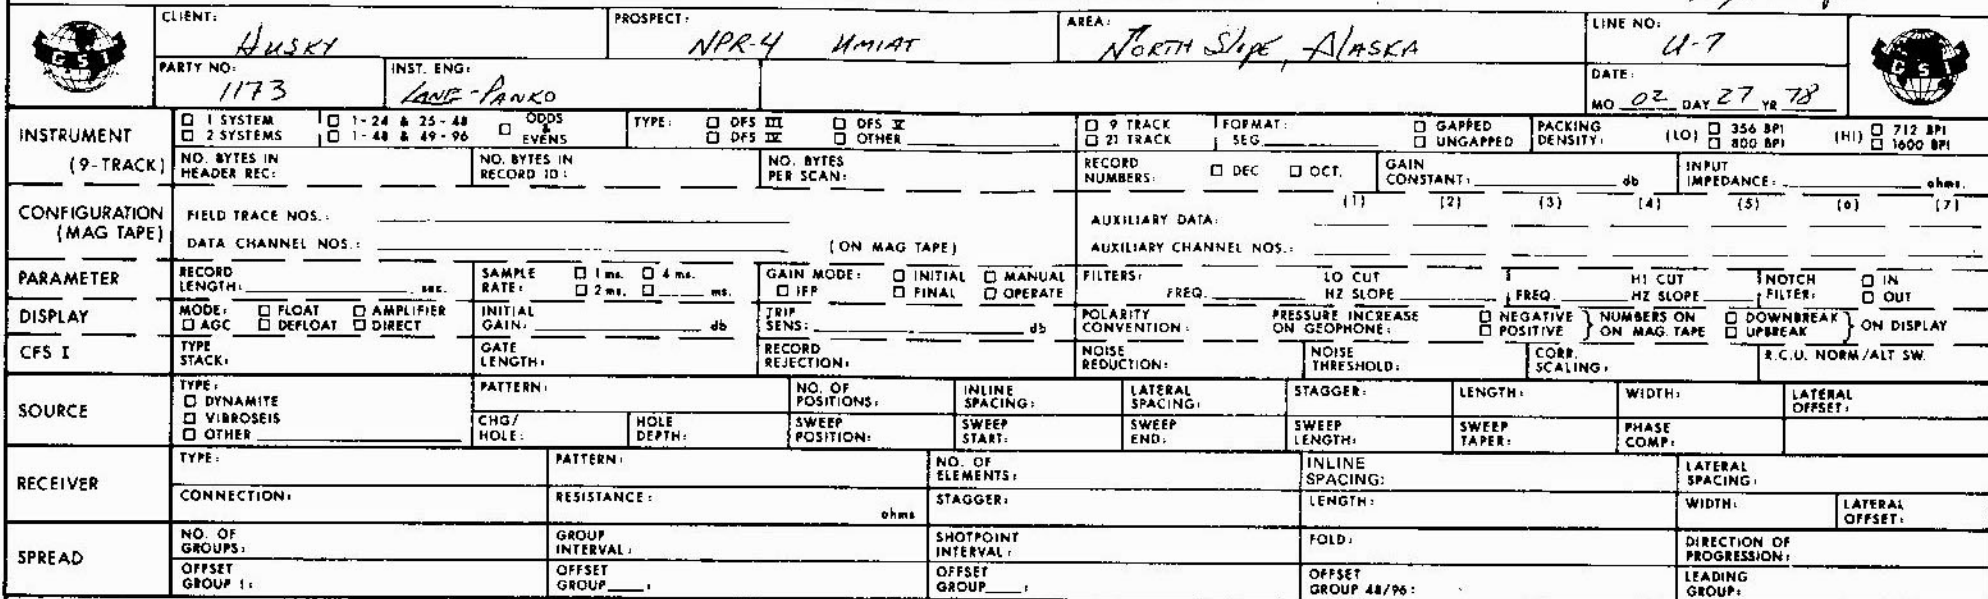 CLIENT: HUSKY PROSPECT: NPR-4 UMIAT AREA: NORTH SlOPE, AlASKA LINE NO: U-7
GSI GSI
PARTY NO: 1173 INST. ENG: LANE-PANKO DATE: MO 02 DAY 27 YR 78
INSTRUMENT (9-TRACK) ☐ 1 SYSTEM ☐ 1-24 & 25-48 ☐ ODDS & EVENS TYPE: ☐ DFS III ☐ DFS V ☐ 9 TRACK FORMAT: ☐ GAPPED PACKING DENSITY: (LO) ☐ 356 BPI (HI) ☐ 712 BPI
☐ 2 SYSTEMS ☐ 1-48 & 49-96 ☐ DFS IV ☐ OTHER ☐ 21 TRACK SEG. ☐ UNGAPPED ☐ 800 BPI ☐ 1600 BPI
NO. BYTES IN HEADER REC: NO. BYTES IN RECORD ID: NO. BYTES PER SCAN: RECORD NUMBERS: ☐ DEC ☐ OCT. GAIN CONSTANT: db INPUT IMPEDANCE: ohms.
CONFIGURATION (MAG TAPE) FIELD TRACE NOS.: AUXILIARY DATA: (1) (2) (3) (4) (5) (6) (7)
DATA CHANNEL NOS.: (ON MAG TAPE) AUXILIARY CHANNEL NOS.:
PARAMETER RECORD LENGTH: sec. SAMPLE RATE: ☐ 1 ms. ☐ 4 ms. ☐ 2 ms. ☐ ms. GAIN MODE: ☐ IFP ☐ INITIAL ☐ FINAL ☐ MANUAL ☐ OPERATE FILTERS: FREQ. LO CUT HZ SLOPE FREQ. HI CUT HZ SLOPE NOTCH FILTER: ☐ IN ☐ OUT
DISPLAY MODE: ☐ FLOAT ☐ AMPLIFIER ☐ AGC ☐ DEFLOAT ☐ DIRECT INITIAL GAIN: db TRIP SENS: db POLARITY CONVENTION: PRESSURE INCREASE ON GEOPHONE: ☐ NEGATIVE ☐ POSITIVE } NUMBERS ON ON MAG. TAPE ☐ DOWNBREAK ☐ UPBREAK } ON DISPLAY
CFS I TYPE STACK: GATE LENGTH: RECORD REJECTION: NOISE REDUCTION: NOISE THRESHOLD: CORR. SCALING: R.C.U. NORM/ALT SW.
SOURCE TYPE: ☐ DYNAMITE ☐ VIBROSEIS ☐ OTHER PATTERN: NO. OF POSITIONS: INLINE SPACING: LATERAL SPACING: STAGGER: LENGTH: WIDTH: LATERAL OFFSET:
CHG/HOLE: HOLE DEPTH: SWEEP POSITION: SWEEP START: SWEEP END: SWEEP LENGTH: SWEEP TAPER: PHASE COMP:
RECEIVER TYPE: PATTERN: NO. OF ELEMENTS: INLINE SPACING: LATERAL SPACING:
CONNECTION: RESISTANCE: ohms STAGGER: LENGTH: WIDTH: LATERAL OFFSET:
SPREAD NO. OF GROUPS: GROUP INTERVAL: SHOTPOINT INTERVAL: FOLD: DIRECTION OF PROGRESSION:
OFFSET GROUP 1: OFFSET GROUP : OFFSET GROUP : OFFSET GROUP 48/96: LEADING GROUP: